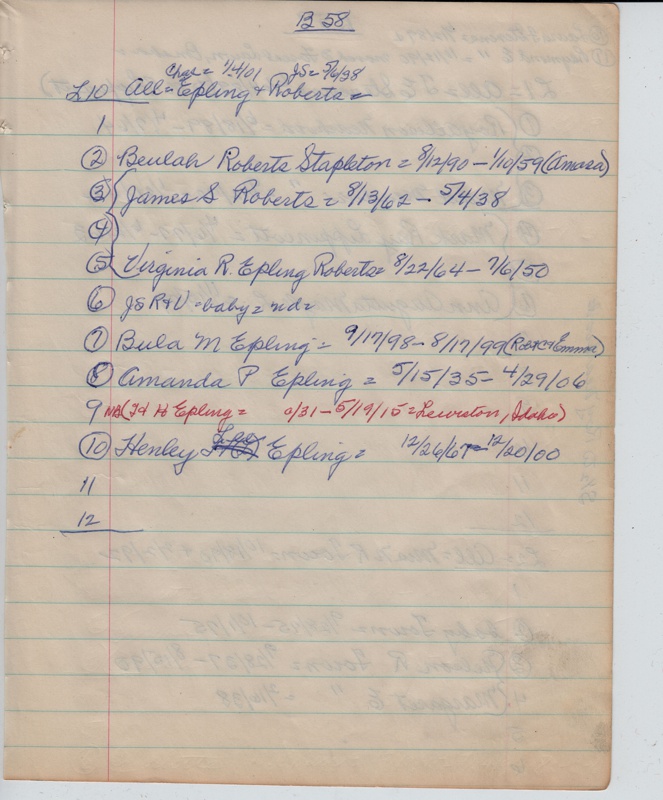 B 58
Chas = 1/4/01 JS = 5/6/38
L10 All = Epling & Roberts =
1
2 Beulah Roberts Stapleton = 8/12/90 - 1/10/59 (Amasa)
3 James S Roberts = 8/13/62 - 5/4/38
4
5 Virginia R. Epling Roberts = 8/22/64 - 7/6/50
6 JSR & V = baby = nd =
7 Bula M Epling = 9/17/98 - 8/17/99 (Rob & Emma)
8 Amanda P Epling = 5/15/35 - 4/29/06
9 NB (Jd H Epling = 0/31 - 5/19/15 = Lewiston, Idaho)
10 Henley Epling = 12/26/67 - 12/20/00
11
12